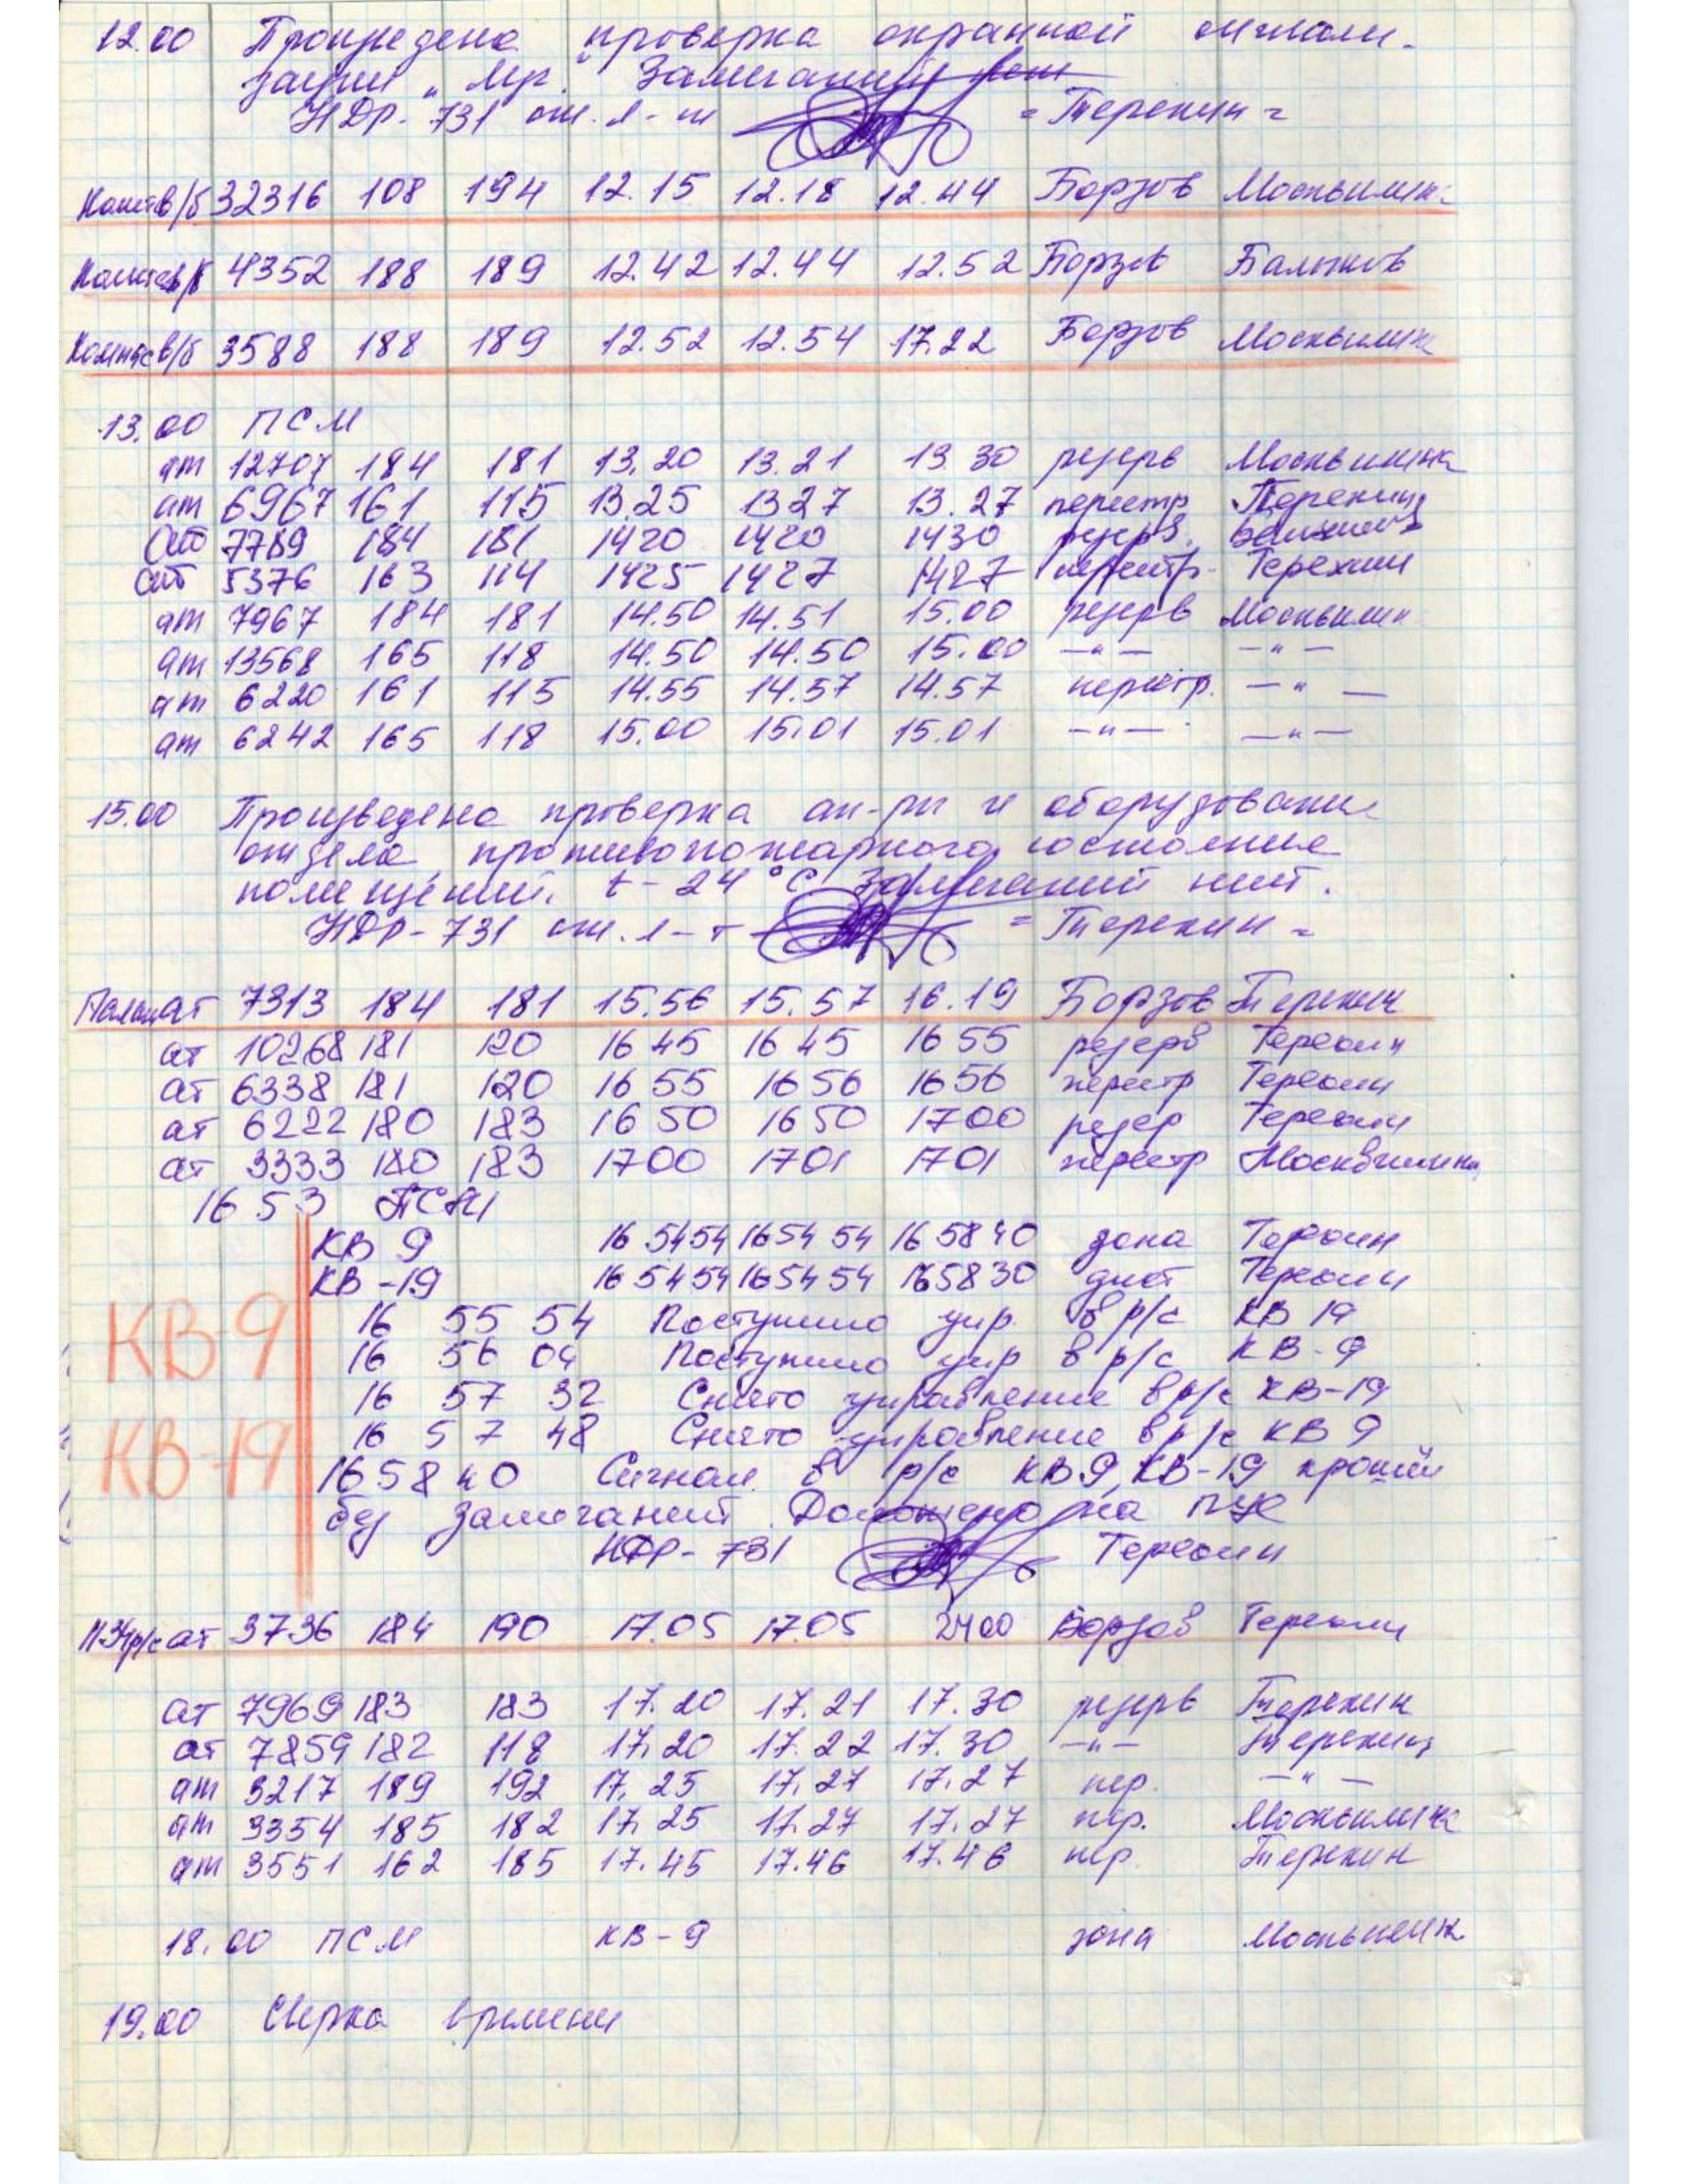 12.00 Произведена проверка охранной сигнали-
зации „ Мр. Замечаний нет
НДр-731 ст. л-т = Терехин =
в/б 32316 108 194 12.15 12.18 12.44 Борзов Москвитин
в/б 4352 188 189 12.42 12.44 12.52 Борзов
в/б 3588 188 189 12.52 12.54 17.22 Борзов Москвитин
13.00 ПСМ
ат 12707 184 181 13.20 13.21 13 30 резерв Москвитина
ат 6967 161 115 13.25 13 27 13.27 перестр Терехин
ат 7789 184 181 1420 1420 1430 резерв.
ат 5376 163 114 1425 1427 1427 перестр. Терехин
ат 7967 184 181 14.50 14.51 15.00 резерв Москвитин
ат 13568 165 118 14.50 14.50 15.00 —"— —"—
ат 6220 161 115 14.55 14.57 14.57 перестр. —"—
ат 6242 165 118 15.00 15.01 15.01 —"— —"—
15.00 Произведена проверка ап-ры и оборудование
отдела, противопожарного состояние
помещений. t-24°С Замечаний нет.
НДР-731 ст. л-т = Терехин =
ат 7313 184 181 15.56 15.57 16.19 Борзов Терехин
ат 10268 181 120 16 45 16 45 16 55 резерв Терехин
ат 6338 181 120 16 55 16 56 16 56 перестр Терехин
ат 6222 180 183 16 50 16 50 1700 резер Терехин
ат 3333 180 183 1700 1701 1701 перестр Москвитина
16 53 ПСМ
КВ 9 16 54 54 16 54 54 16 58 40 зона Терехин
КВ-19 16 54 54 16 54 54 16 58 30 Терехин
КВ 9
16 55 54 Поступило упр. в р/с КВ 19
16 56 04 Поступило упр в р/с КВ-9
16 57 32 Снято управление в р/с КВ-19
КВ-19
16 57 48 Снято управление в р/с КВ 9
16 58 40 Сигнал в р/с КВ 9, КВ-19 прошёл
без замечаний. Доложено на
НДР-731 Терехин
р/с ат 3736 184 190 17.05 17.05 2400 Борзов Терехин
ат 7969 183 183 17.20 17.21 17.30 резерв Терехин
ат 7859 182 118 17.20 17.22 17.30 —"— Терехин
ат 3217 189 192 17.25 17.27 17.27 пер. —"—
ат 3354 185 182 17.25 17.27 17.27 пер. Москвитина
ат 3551 162 185 17.45 17.46 17.46 пер. Терехин
18.00 ПСМ КВ-9 зона Москвитин
19.00 Сверка времени